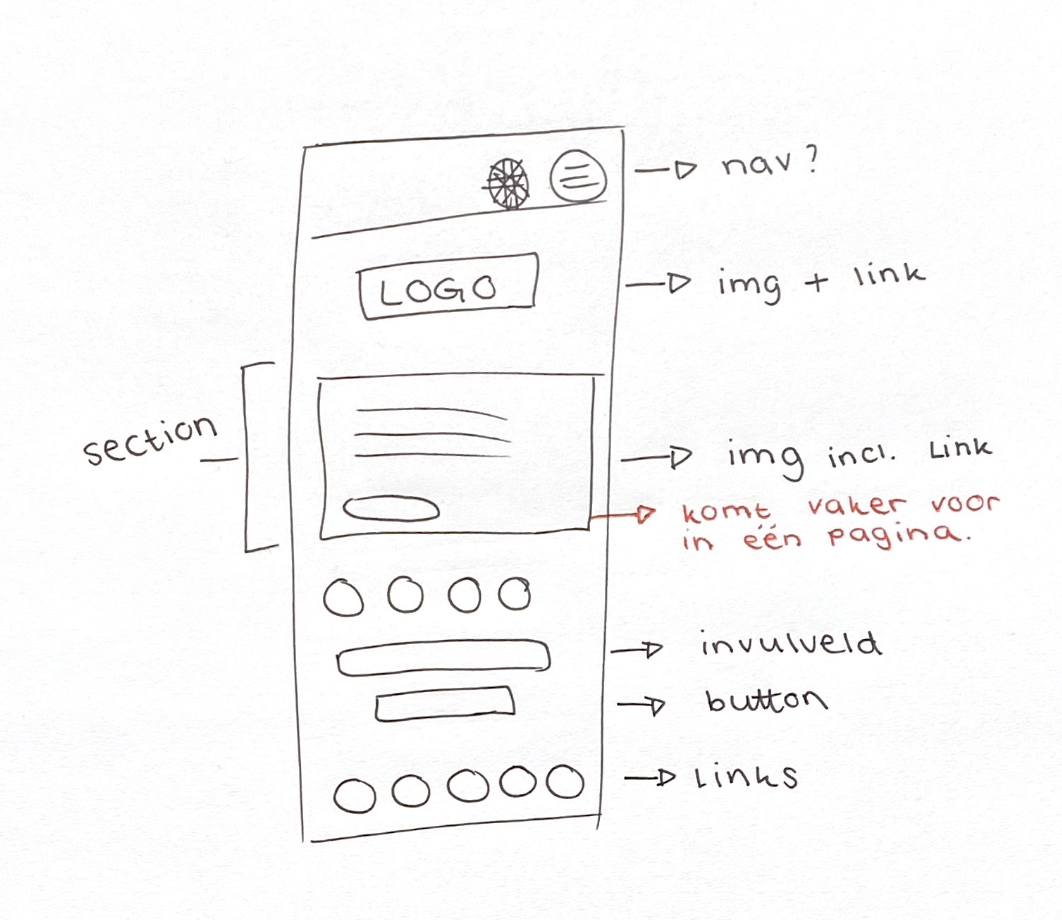 nav?
LOGO
img + link
section
img incl. Link
komt vaker voor
in één pagina.
invulveld
button
Links